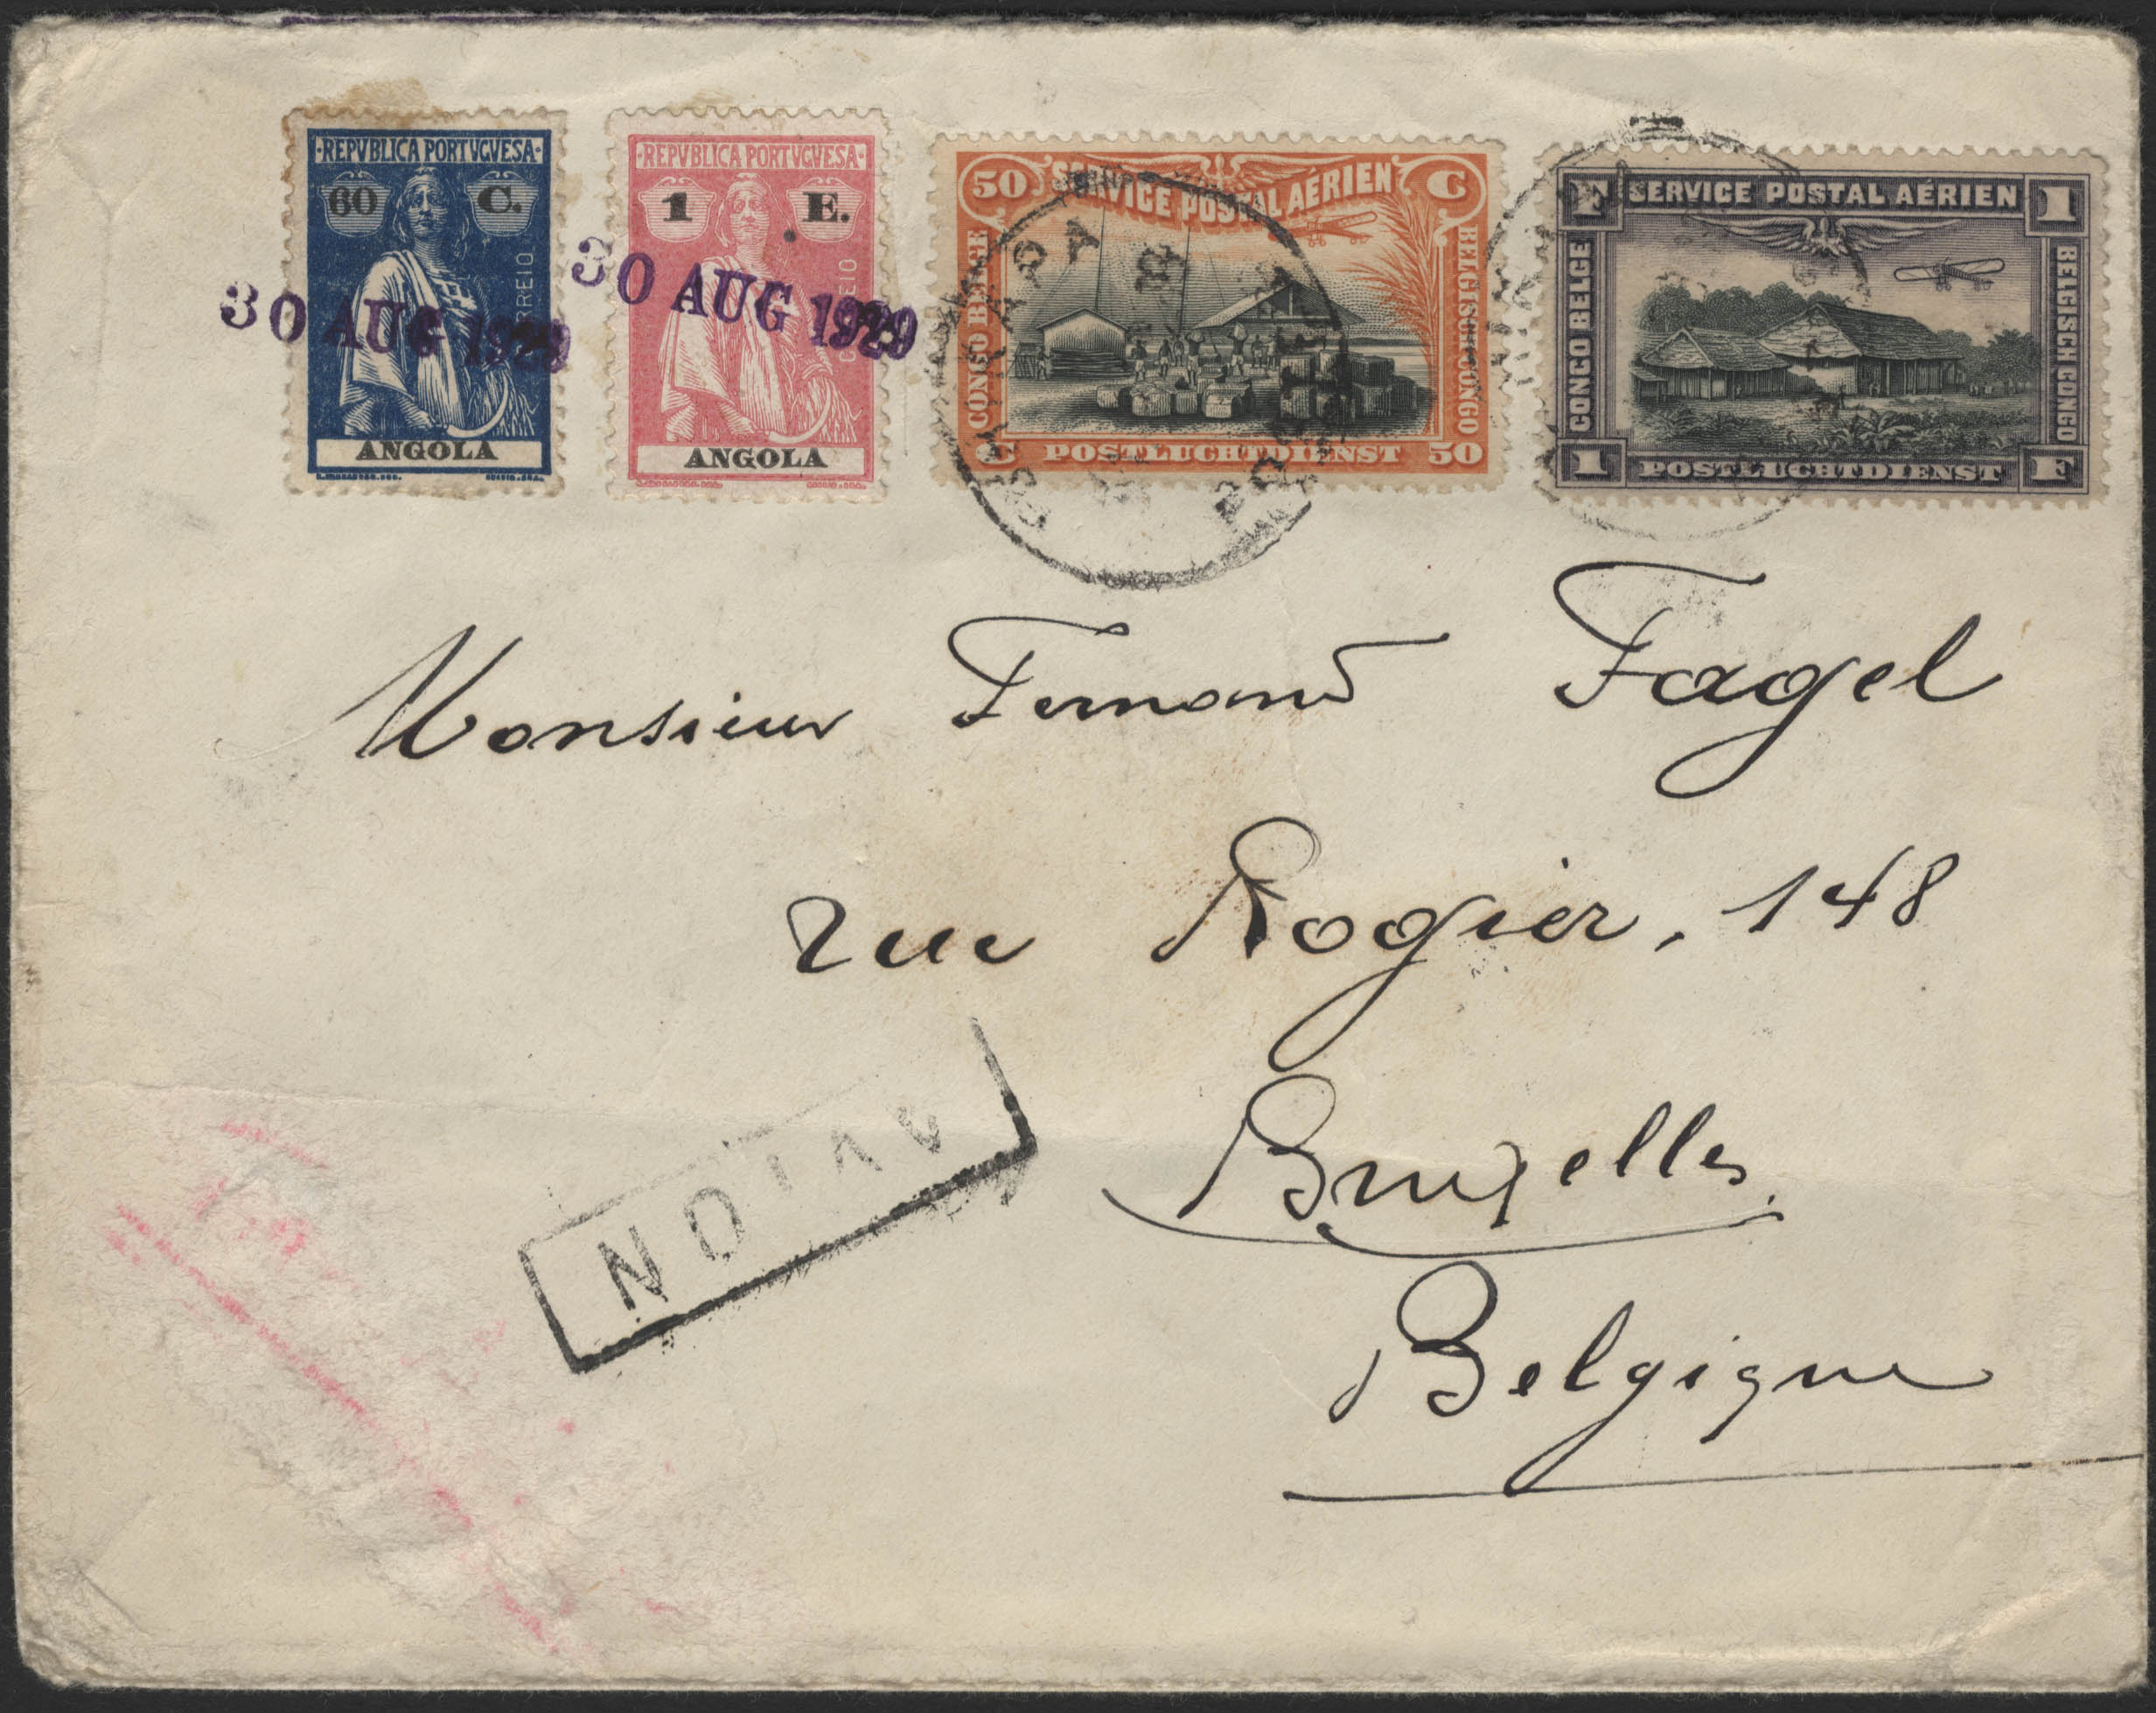 ·REPVBLICA PORTVGVESA·
60 C.
CORREIO
30 AUG 1929
ANGOLA
·REPVBLICA PORTVGVESA·
1 E.
CORREIO
30 AUG 1929
ANGOLA
50 SERVICE POSTAL AÉRIEN C
CONGO BELGE
BELGISCH CONGO
C POSTLUCHTDIENST 50
F SERVICE POSTAL AÉRIEN 1
CONGO BELGE
BELGISCH CONGO
1 POSTLUCHTDIENST F
Monsieur Fernand Fagel
rue Rogier, 148
Bruxelles
Belgique